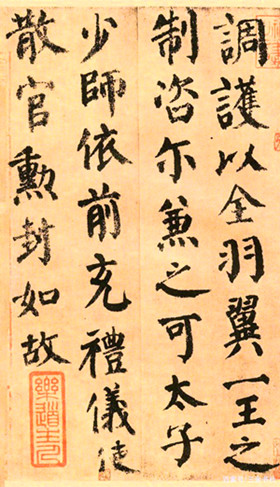 調護以全羽翼一王之
制咨尓兼之可太子
少師依前充禮儀使
散官勳封如故